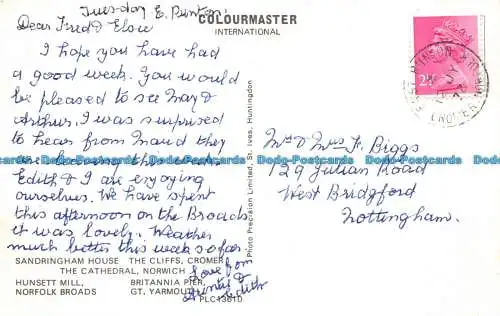 Tuesday E. Runton.
COLOURMASTER
INTERNATIONAL
Dear Fred & Elsie
I hope you have had
a good week. You would
be pleased to see May &
Arthur. I was surprised
to hear from Maud they
are this week.
Edith & I are enjoying
ourselves. We have spent
this afternoon on the Broads
it was lovely. Weather
much better this week so far.
Love from
&
Edith
SANDRINGHAM HOUSE THE CLIFFS, CROMER
THE CATHEDRAL, NORWICH
HUNSETT MILL, BRITANNIA PIER,
NORFOLK BROADS GT. YARMOUTH
PLC13610
Photo Precision Limited, St. Ives, Huntingdon
2½
CROMER
Mr & Mrs F. Biggs
129 Julian Road
West Bridgford
Nottingham.
Dodo-Postcards Dodo-Postcards Dodo-Postcards Dodo-Postcards Dodo-Postcards